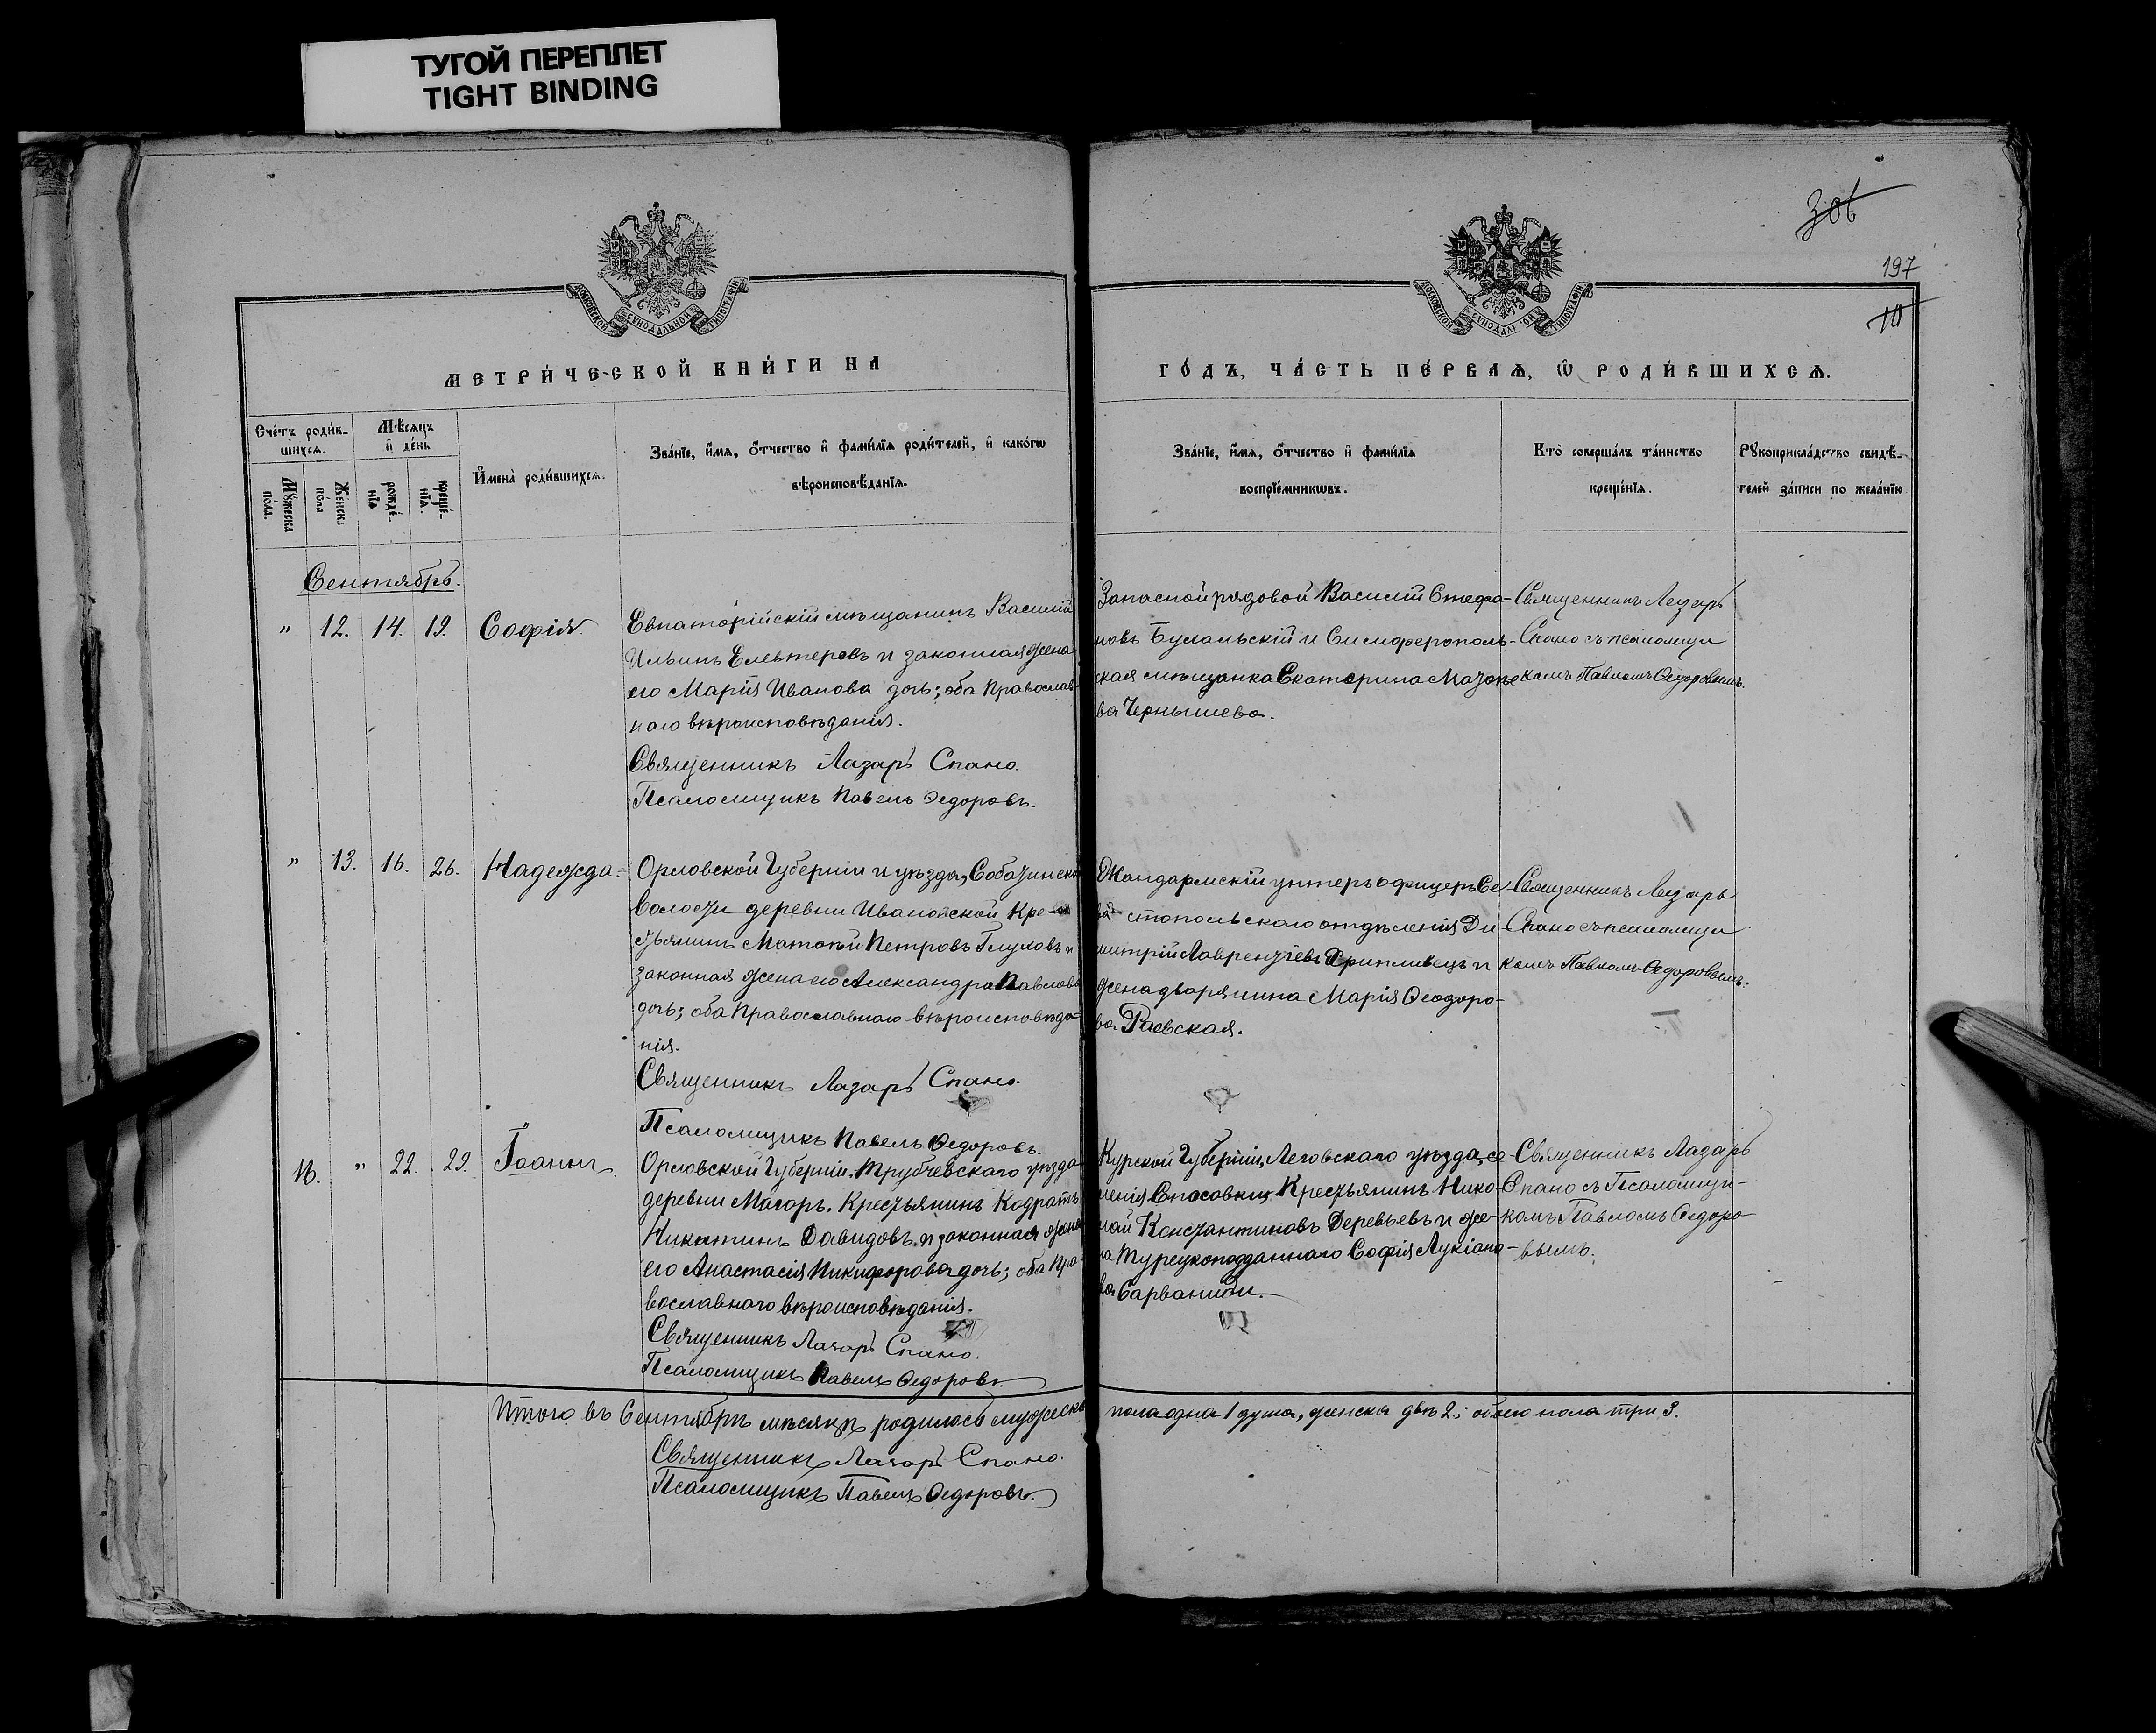 ТУГОЙ ПЕРЕПЛЕТ
TIGHT BINDING
306
197
10
МОСКОВСКОЙ СѴНОДАЛЬНОЙ ТИПОГРАФІИ
МОСКОВСКОЙ СѴНОДАЛЬНОЙ ТИПОГРАФІИ
МЕТРИ́ЧЕСКОЙ КНИ́ГИ НА
ГО́ДЪ, ЧА́СТЬ ПЕ́РВАѦ, Ѡ РОДИ́ВШИХСѦ.
Сче́тъ роди́в-
шихсѧ.
Мꙋ́жеска
по́ла.
Же́нск.
по́ла
Мѣ́сѧцъ
и҆ де́нь
рожде́-
нїѧ
креще́-
нїѧ.
И҆мена̀ роди́вшихсѧ.
Зва́нїе, и҆́мѧ, ѻ҆́тчество и҆ фами́лїѧ роди́телей, и҆ како́гѡ
вѣроисповѣ́данїѧ.
Зва́нїе, и҆́мѧ, ѻ҆́тчество и҆ фами́лїѧ
воспрїе́мникѡвъ.
Кто̀ соверша́лъ та́инство
креще́нїѧ.
Рꙋкоприкла́дство свидѣ́-
телей за́писи по жела́нїю
Сентябрь.
" 12. 14. 19. Софія.
Евпаторійскій мѣщанинъ Василій
Ильинъ Елевтеровъ и законная жена
его Марія Иванова дочь; оба Православ-
наго вѣроисповѣданія.
Священникъ Лазарь Спано.
Псаломщикъ Павелъ Ѳедоровъ.
Запасной рядовой Василій Стефа-
новъ Булальскій и Симферополь-
ская мѣщанка Екатерина
ва Чернышева.
Священникъ Лазарь
Спано съ псаломщи
комъ Павломъ Ѳедоровымъ.
" 13. 16. 26. Надежда.
Орловской Губерніи и уѣзда,
Волости деревни Ивановской Кре-
стьянинъ Матѳей Петровъ Глуховъ и
законная жена его Александра Павлова
дочь; оба Православнаго вѣроисповѣда-
нія.
Священникъ Лазарь Спано.
Псаломщикъ Павелъ Ѳедоровъ.
Жандармскій унтеръ офицеръ Се-
вастопольскаго отдѣленія Ди-
митрій Лаврентіевъ и
жена дворянина Марія Ѳеодоро-
ва Раевская.
Священникъ Лазарь
Спано съ псаломщи
комъ Павломъ Ѳедоровымъ.
16. " 22. 29. Іоаннъ.
Орловской Губерніи, Трубчевскаго уѣзда
деревни Магоръ, Крестьянинъ Кодратъ
Никитинъ Давидовъ и законная жена
его Анастасія Никифорова дочь; оба Пра-
вославнаго вѣроисповѣданія.
Священникъ Лазарь Спано.
Псаломщикъ Павелъ Ѳедоровъ.
Курской Губерніи, Леговскаго уѣзда, се-
ленія Спасовки, Крестьянинъ Нико-
лай Константиновъ Деревьевъ и же-
на Турецкоподданнаго Софія Лукіано-
ва Сарваниди.
Священникъ Лазарь
Спано съ Псаломщи-
комъ Павломъ Ѳедоро-
вымъ.
Итого въ Сентябрѣ мѣсяцѣ родилось мужеска пола одна 1 душа, женска двѣ 2; обоего пола три 3.
Священникъ Лазарь Спано.
Псаломщикъ Павелъ Ѳедоровъ.